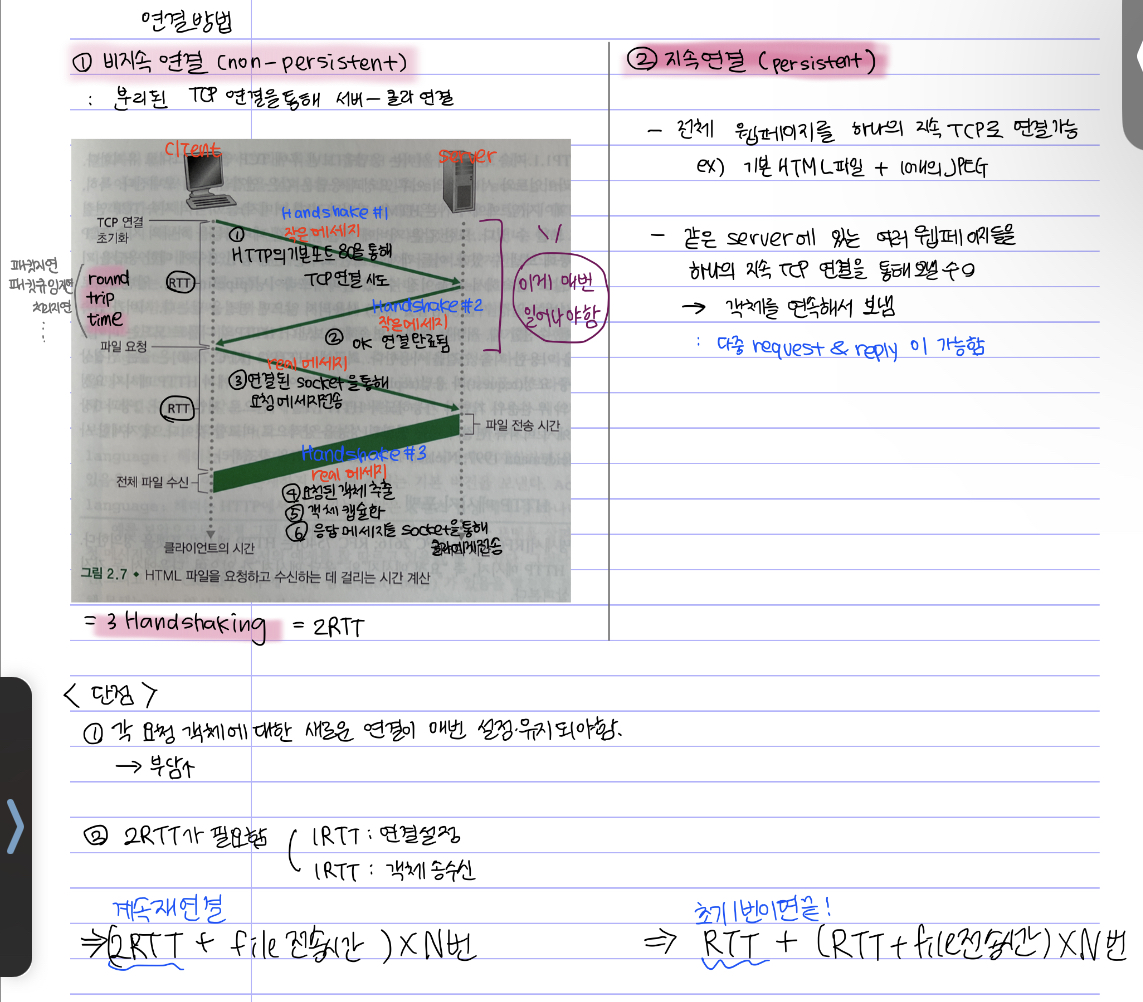 연결방법
① 비지속 연결 (non-persistent)
: 분리된 TCP 연결을 통해 서버 - 클라 연결
client
server
TCP 연결
초기화
Handshake #1
작은 메세지
①
HTTP의 기본포트 80을 통해
TCP연결 시도
패킷지연
패킷큐잉지연
처리지연
⋮
round
trip
time
RTT
이게 매번
일어나야함
Handshake #2
작은메세지
② OK 연결완료됨
파일 요청
real 메세지
③ 연결된 socket을 통해
요청메세지전송
RTT
파일 전송 시간
Handshake #3
real 메세지
전체 파일 수신
④ 요청된 객체 추출
⑤ 객체 캡슐화
⑥ 응답 메세지를 socket을 통해
클라에게전송
클라이언트의 시간
그림 2.7 ◆ HTML 파일을 요청하고 수신하는 데 걸리는 시간 계산
= 3 Handshaking = 2RTT
② 지속연결 (persistent)
- 전체 웹페이지를 하나의 지속 TCP로 연결가능
ex) 기본 HTML파일 + 10개의 JPEG
- 같은 server에 있는 여러 웹페이지들을
하나의 지속 TCP 연결을 통해 보낼 수 O
→ 객체를 연속해서 보냄
: 다중 request & reply 이 가능함
<단점>
① 각 요청 객체에 대한 새로운 연결이 매번 설정·유지되야함.
→ 부담↑
② 2RTT가 필요함
1RTT : 연결설정
1RTT : 객체 송수신
계속재연결
⇒ (2RTT + file 전송시간) × N번
초기1번이면끝!
⇒ RTT + (RTT + file전송시간) × N번